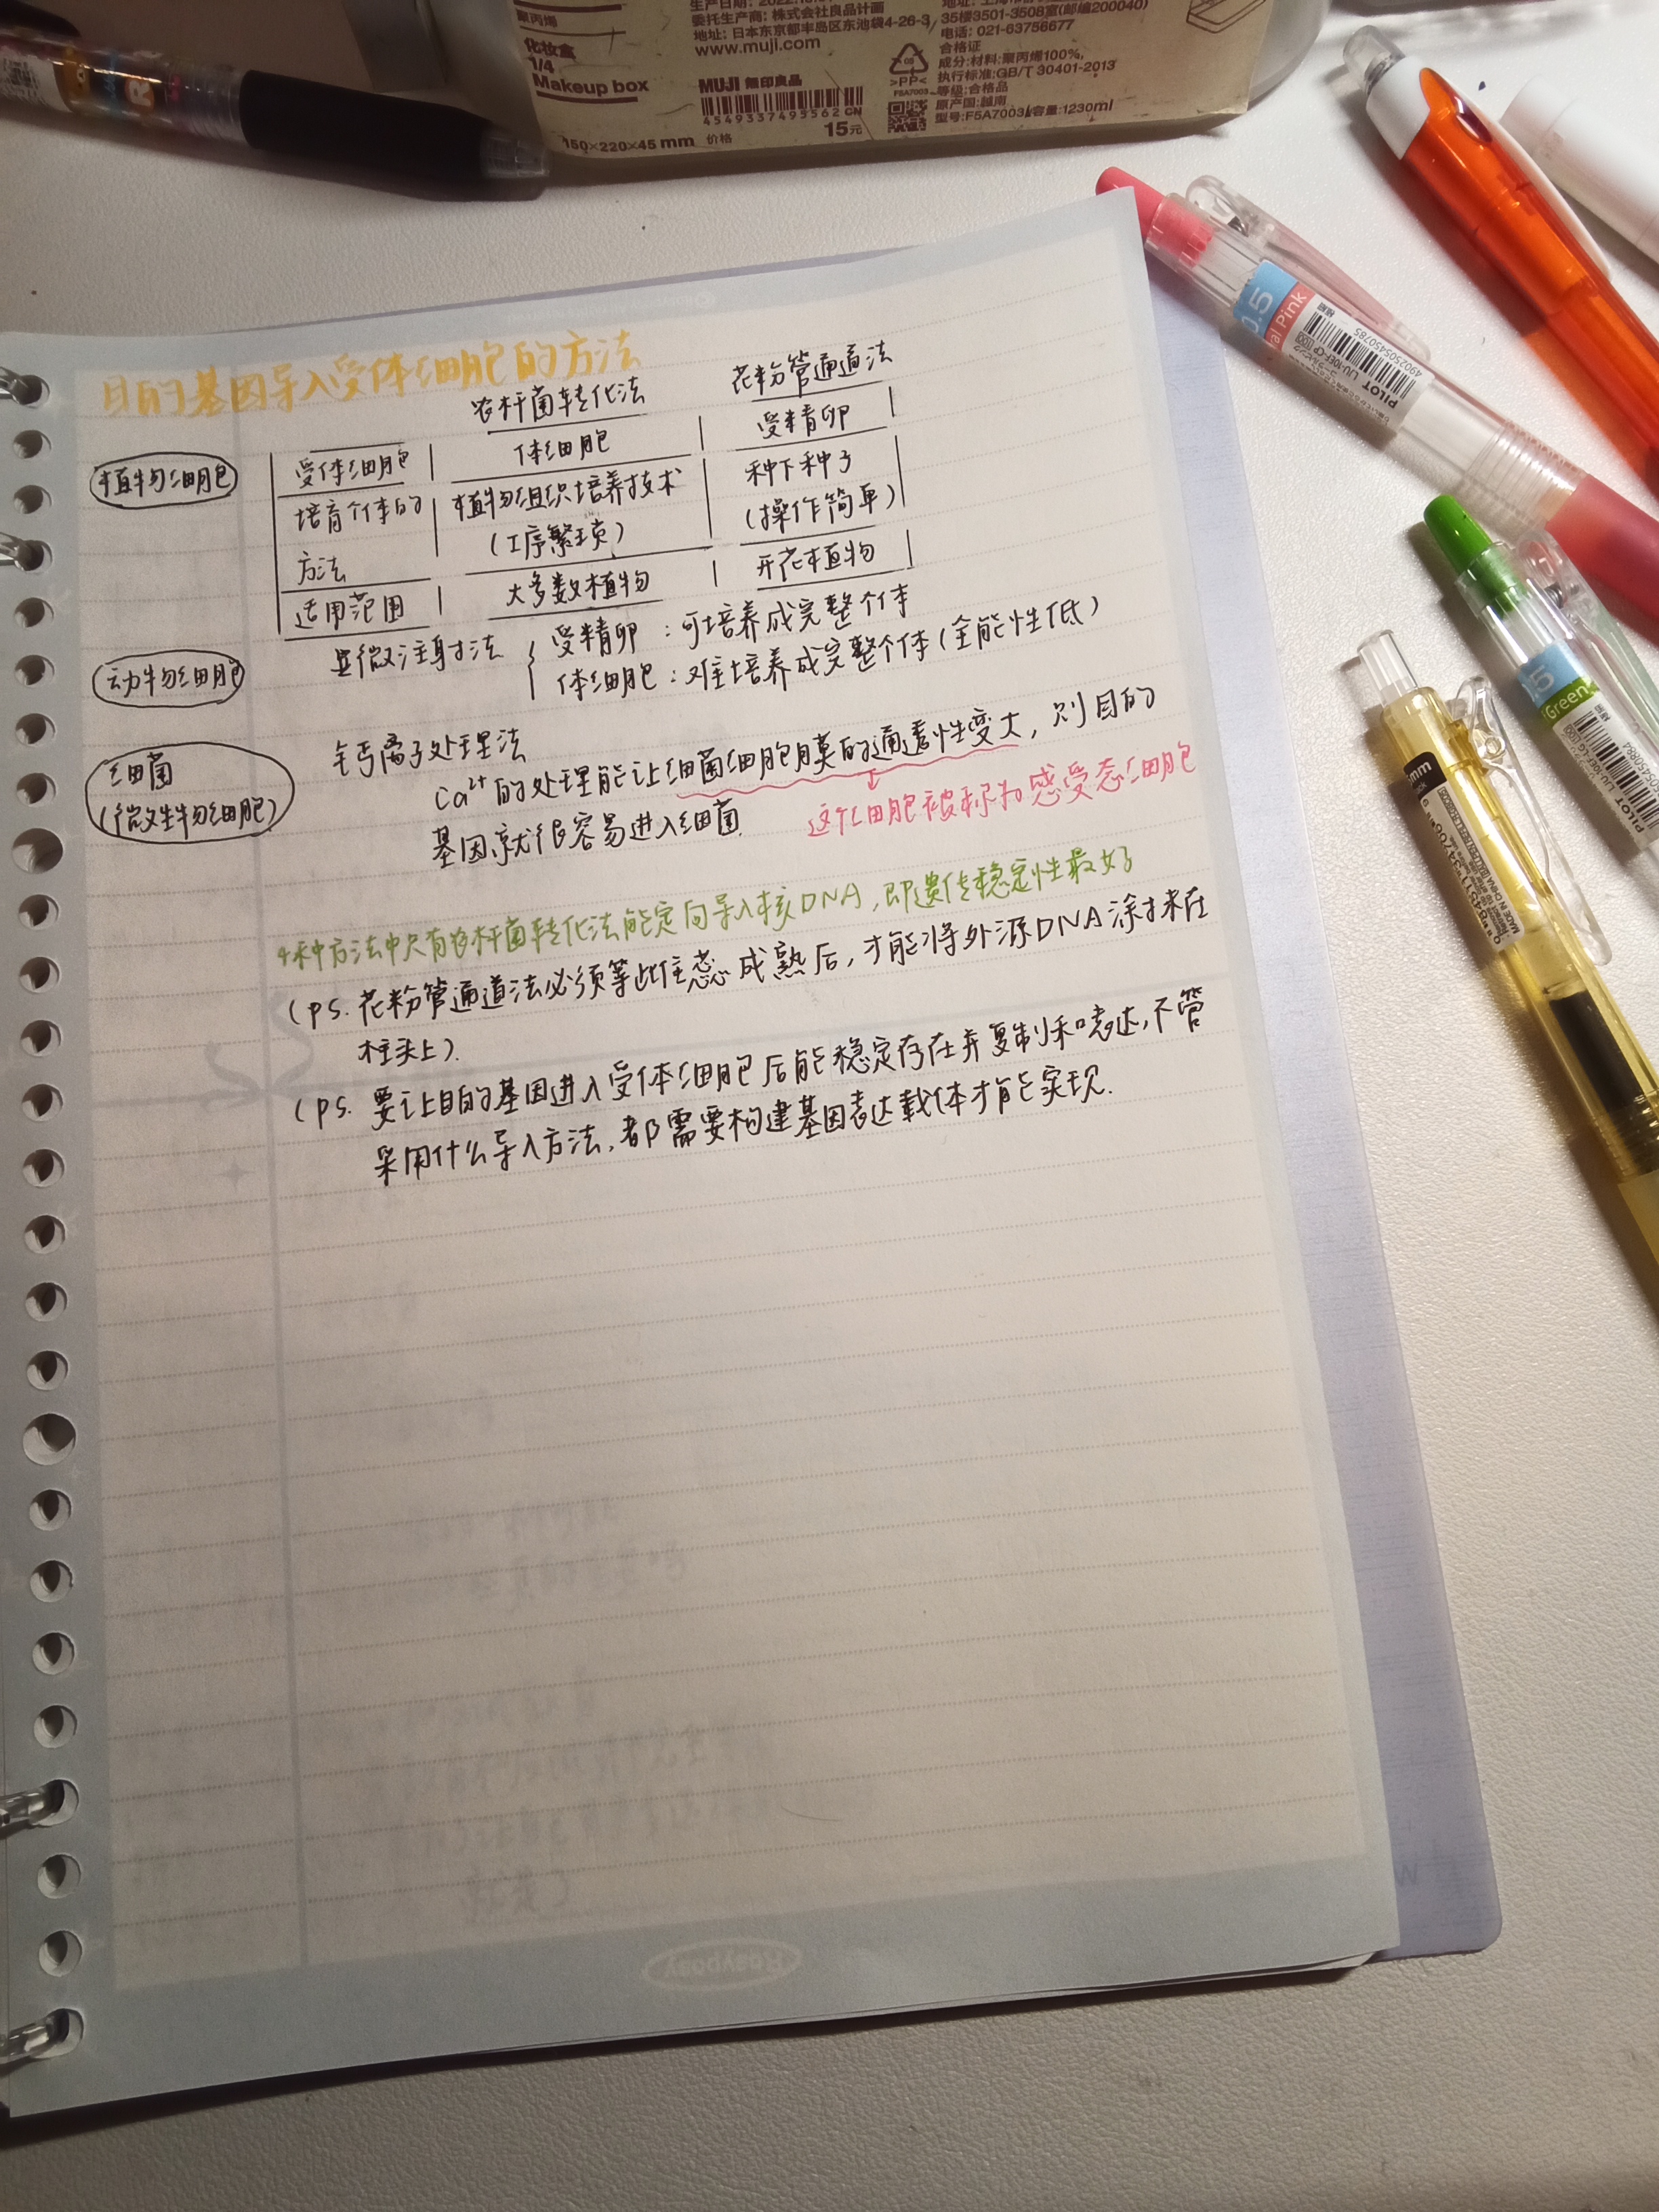 生产日期: 2022.10.
委托生产商: 株式会社良品计画
地址: 日本东京都丰岛区东池袋4-26-3
www.muji.com
聚丙烯
化妆盒
1/4
Makeup box
MUJI 無印良品
4549337495562 CN
150×220×45 mm 价格 15元
35楼3501-3508室(邮编200040)
电话: 021-63756677
合格证
成分:材料:聚丙烯100%,
执行标准:GB/T 30401-2013
等级:合格品
原产国:越南
型号:F5A7003 容量:1230ml
>PP<
F5A7003
目的基因导入受体细胞的方法
农杆菌转化法 花粉管通道法
植物细胞
受体细胞 体细胞 受精卵
培育个体的方法 植物组织培养技术 种下种子
(工序繁琐) (操作简单)
适用范围 大多数植物 开花植物
动物细胞
显微注射法 受精卵:可培养成完整个体
体细胞:难培养成完整个体(全能性低)
细菌
(微生物细胞)
钙离子处理法
Ca²⁺的处理能让细菌细胞膜的通透性变大,则目的
基因就很容易进入细菌
这个细胞被称为感受态细胞
4种方法中只有农杆菌转化法能定向导入核DNA,即遗传稳定性最好
(ps.花粉管通道法必须等雌蕊成熟后,才能将外源DNA涂抹在
柱头上).
(ps. 要让目的基因进入受体细胞后能稳定存在并复制和表达,不管
采用什么导入方法,都需要构建基因表达载体才能实现.
Rosyposy
0.5
al Pink
PILOT
LJU-10EF-CP
4902505450785
Green
PILOT
MADE IN CHINA